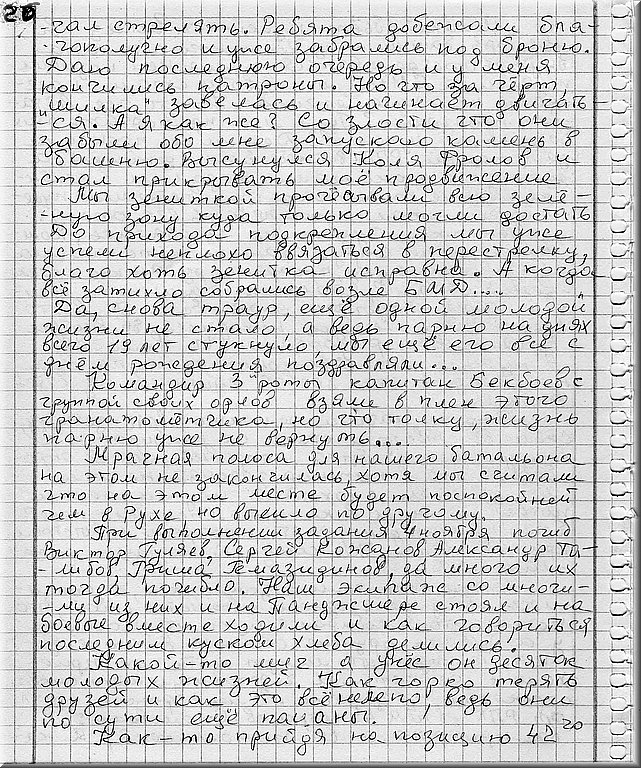 26
-чал стрелять. Ребята добежали бла-
-гополучно и уже забрались под броню.
Даю последнюю очередь и у меня
кончились патроны. Но что за чёрт,
"шилка" завелась и начинает двигать-
-ся. А я как же? Со злости что они
забыли обо мне запускаю камень в
башню. Высунулся Коля Фролов и
стал прикрывать моё продвижение
Мы зениткой прочёсывали всю зелё-
-ную зону куда только могли достать
До прихода подкрепления мы уже
успели неплохо ввязаться в перестрелку,
благо хоть зенитка исправна. А когда
всё затихло собрались возле БМД....
Да, снова траур, ещё одной молодой
жизни не стало, а ведь парню на днях
всего 19 лет стукнуло, мы ещё его все с
днём рождения поздравляли...
Командир 3 роты капитан Бекбоев с
группой своих орлов взяли в плен этого
гранатомётчика, но что толку, жизнь
парню уже не вернуть....
Мрачная полоса для нашего батальона
на этом не закончилась, хотя мы считали
что на этом месте будет поспокойней
чем в Рухе, но вышло по другому.
При выполнении задания 4 ноября погиб
Виктор Гуляев, Сергей Кожанов Александр Та-
-либов, Гриша Гемазидинов, да много их
тогда погибло. Наш экипаж со многи-
-ми из них и на Панджшере стоял и на
боевые вместе ходили и как говориться
последним куском хлеба делились.
Какой-то миг а унёс он десяток
молодых жизней. Как горко терять
друзей и как это всё нелепо, ведь они
по сути ещё пацаны.
Как-то прийдя на позицию 42²⁰